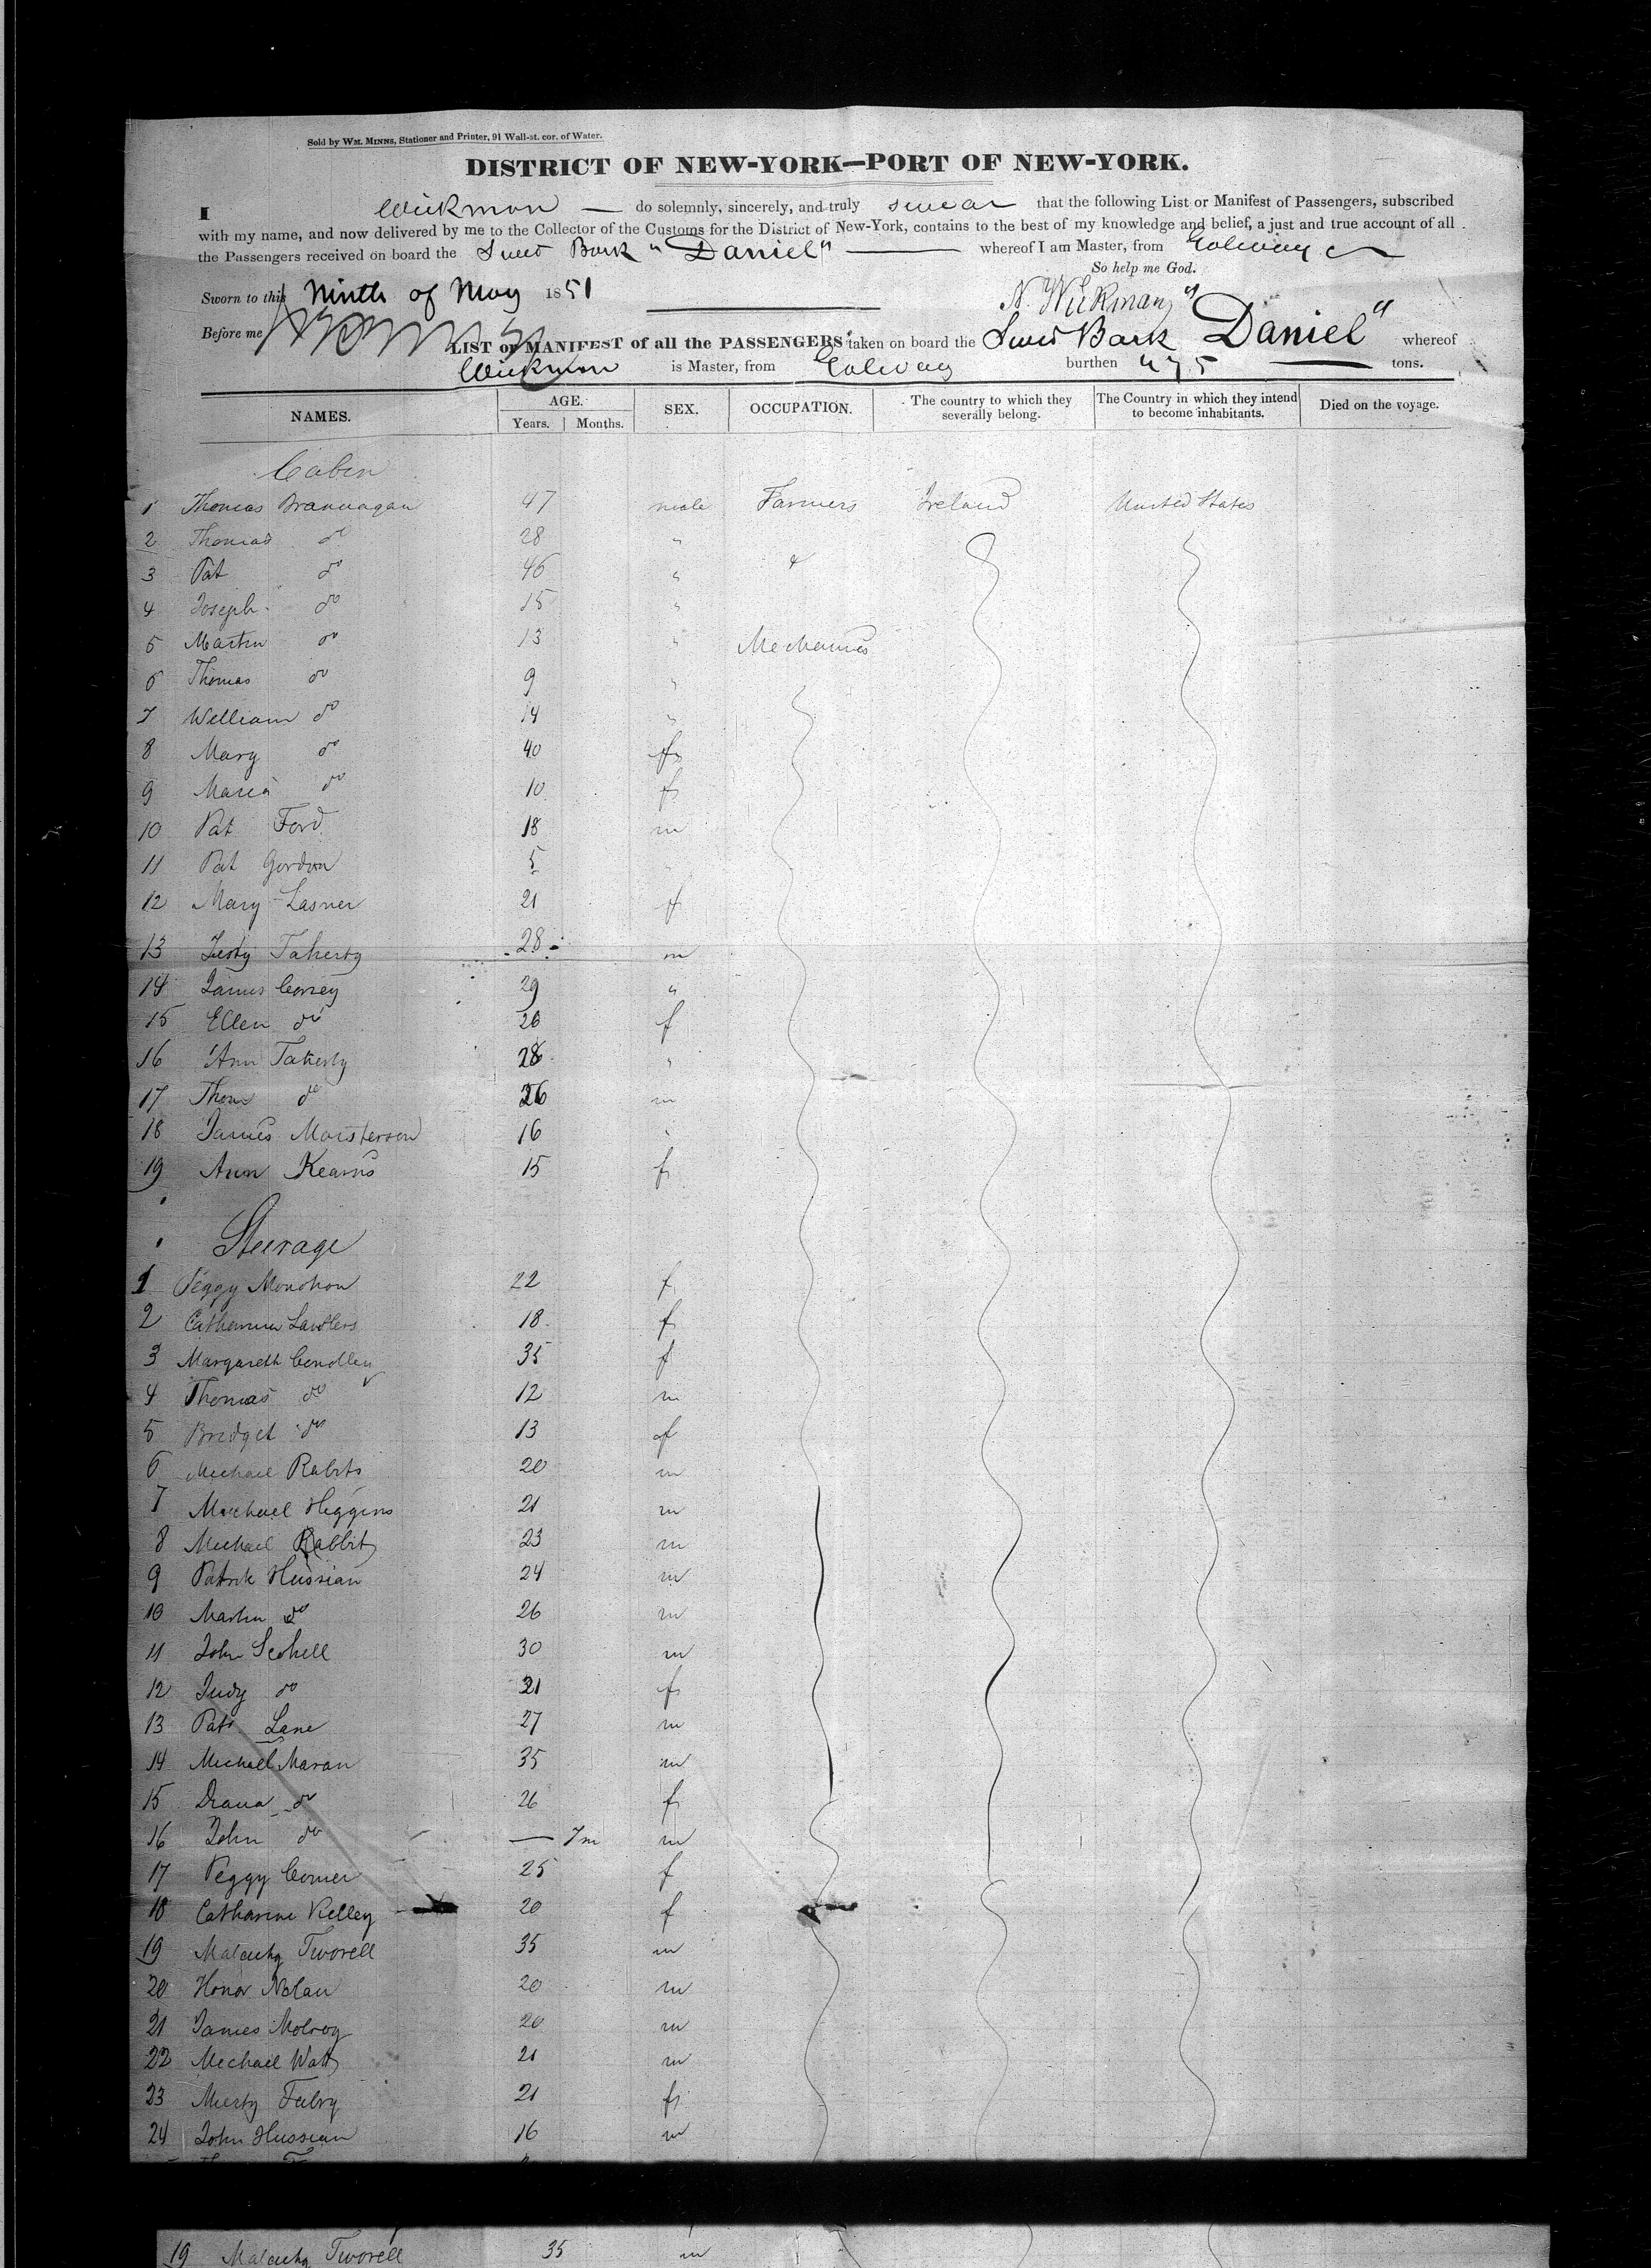 Sold by WM. MINNS, Stationer and Printer, 91 Wall-st. cor. of Water.
DISTRICT OF NEW-YORK—PORT OF NEW-YORK.
I Wickman — do solemnly, sincerely, and truly swear that the following List or Manifest of Passengers, subscribed
with my name, and now delivered by me to the Collector of the Customs for the District of New-York, contains to the best of my knowledge and belief, a just and true account of all
the Passengers received on board the Swed Bark "Daniel" — whereof I am Master, from Galway
So help me God.
Sworn to this Ninth of May 1851
N. Wickman
Before me
LIST OR MANIFEST of all the PASSENGERS taken on board the Swed Bark "Daniel" whereof
Wickman is Master, from Galway burthen 475 tons.
NAMES. AGE. Years. Months. SEX. OCCUPATION. The country to which they severally belong. The Country in which they intend to become inhabitants. Died on the voyage.
Cabin
1 Thomas Brannagan 47 male Farmers Ireland United States
2 Thomas do 28 "
3 Pat do 46 "
4 Joseph do 15 "
5 Martin do 13 " Mechanics
6 Thomas do 9 "
7 William do 14 "
8 Mary do 40 f
9 Maria do 10 f
10 Pat Ford 18 m
11 Pat Gordon 5 "
12 Mary Lasner 21 f
13 Festy Faherty 28 m
14 James Correy 29 "
15 Ellen do 26 f
16 Ann Faherty 28 "
17 Thos do 26 m
18 James Moisterson 16 "
19 Ann Kearns 15 f
Steerage
1 Peggy Monohon 22 f
2 Catherina Lawlers 18 f
3 Margareth Condley 35 f
4 Thomas do 12 m
5 Bridget do 13 f
6 Michael Rabits 20 m
7 Michael Higgins 21 m
8 Michael Rabbit 23 m
9 Patrik Hussian 24 m
10 Martin do 26 m
11 John Scohell 30 m
12 Judy do 21 f
13 Patr Lane 27 m
14 Michael Maran 35 m
15 Diana do 26 f
16 John do — 7m m
17 Peggy Comer 25 f
18 Catharine Kelley 20 f
19 Malachy Tworell 35 m
20 Honor Nolan 20 m
21 James Molroy 20 m
22 Michael Watt 21 m
23 Murty Falvy 21 f
24 John Hussian 16 m
19 Malachy Tworell 35 m